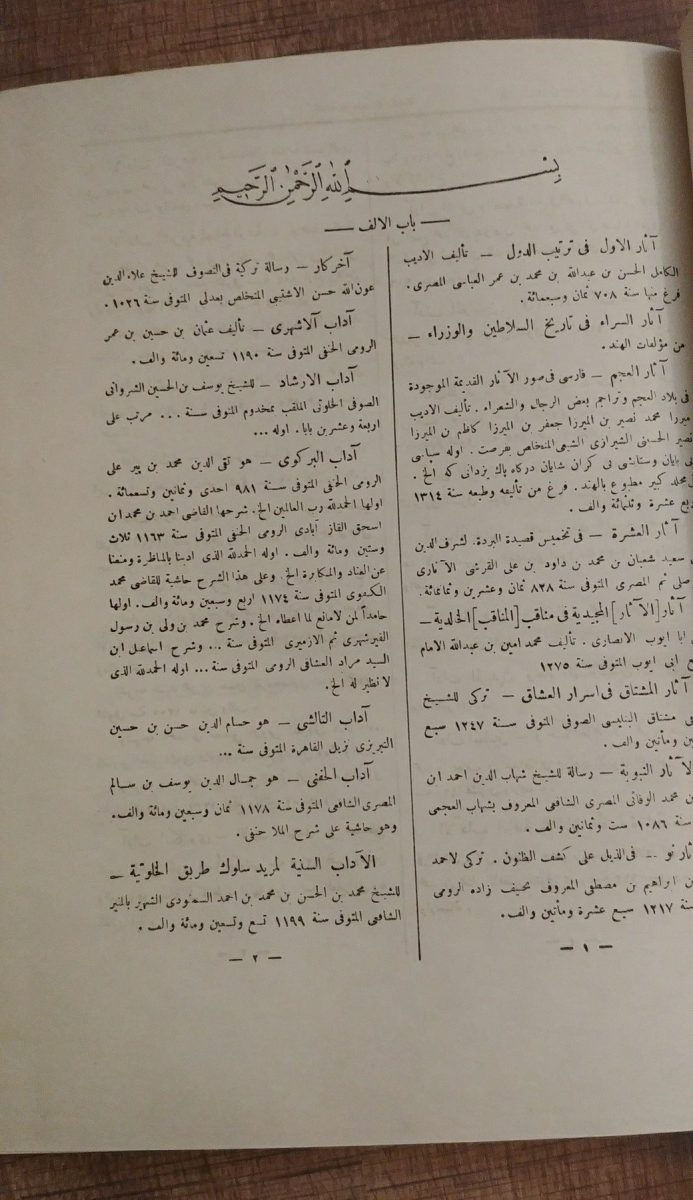 بسم الله الرحمن الرحيم
— باب الالف —
آثار الاول فى ترتيب الدول — تأليف الاديب
الكامل الحسن بن عبدالله بن محمد بن عمر العباسى المصرى.
فرغ منها سنة ٧٠٨ ثمان وسبعمائة.
آثار السراء فى تاريخ السلاطين والوزراء —
من مؤلفات الهند.
آثار العجم — فارسى فى صور الآثار القديمة الموجودة
فى بلاد العجم وتراجم بعض الرجال والشعراء. تأليف الاديب
ميرزا محمد نصير بن الميرزا جعفر بن الميرزا كاظم بن الميرزا
نصير الحسينى الشيرازى الشيعى المتخلص بفرصت. اوله سپاسى
بى پايان وستايشى بى كران شايان درگاه پاك يزدانى كه الخ.
مجلد كبير مطبوع بالهند. فرغ من تأليفه وطبعه سنة ١٣١٤
ربع عشرة وثلثمائة والف.
آثار العشرة — فى تخميس قصيدة البردة. لشرف الدين
سعيد شعبان بن محمد بن داود بن على القرشى الآثارى
صلى ثم المصرى المتوفى سنة ٨٢٨ ثمان وعشرين وثمانمائة.
آثار [الآثار] المجيدية فى مناقب [المناقب] الخالدية —
ابا ايوب الانصارى. تأليف محمد امين بن عبدالله الامام
ابى ايوب المتوفى سنة ١٢٧٥
آثار المشتاق فى اسرار العشاق — تركى للشيخ
مشتاق البتليسى الصوفى المتوفى سنة ١٢٤٧ سبع
ين ومأتين والف.
الآثار النبوية — رسالة للشيخ شهاب الدين احمد ابن
بن محمد الوفائى المصرى الشافعى المعروف بشهاب العجمى
سنة ١٠٨٦ ست وثمانين والف.
ثار نو — فى الذيل على كشف الظنون. تركى لاحمد
بن ابراهيم بن مصطفى المعروف بحنيف زاده الرومى
سنة ١٢١٧ سبع عشرة ومأتين والف.
— ١ —
آخركار — رسالة تركية فى التصوف للشيخ علاء الدين
عون الله حسن الاشتيبى المتخلص بعدلى المتوفى سنة ١٠٢٦.
آداب آلاشهرى — تأليف عثمان بن حسين بن عمر
الرومى الحنفى المتوفى سنة ١١٩٠ تسعين ومائة والف.
آداب الارشاد — للشيخ يوسف بن الحسين الشروانى
الصوفى الخلوتى الملقب بمخدوم المتوفى سنة ... مرتب على
اربعة وعشرين بابا. اوله ...
آداب البركوى — هو تقى الدين محمد بن پير على
الرومى الحنفى المتوفى سنة ٩٨١ احدى وثمانين وتسعمائة.
اولها الحمدلله رب العالمين الخ. شرحها القاضى احمد بن محمد ابن
اسحق القاز آبادى الرومى الحنفى المتوفى سنة ١١٦٣ ثلاث
وستين ومائة والف. اوله الحمدلله الذى ادبنا بالمناظرة ومنعنا
عن العناد والمكابرة الخ. وعلى هذا الشرح حاشية للقاضى محمد
الكفوى المتوفى سنة ١١٧٤ اربع وسبعين ومائة والف. اولها
حامداً لمن لامانع لما اعطاه الخ. وشرح محمد بن ولى بن رسول
القيرشهرى ثم الازميرى المتوفى سنة ... وشرح اسماعيل ابن
السيد مراد العشاقى الرومى المتوفى سنة ... اوله الحمدلله الذى
لانظير له الخ.
آداب التالشى — هو حسام الدين حسن بن حسين
التبريزى نزيل القاهرة المتوفى سنة ...
آداب الحفنى — هو جمال الدين يوسف بن سالم
المصرى الشافعى المتوفى سنة ١١٧٨ ثمان وسبعين ومائة والف.
وهو حاشية على شرح الملا حنفى.
الآداب السنية لمريد سلوك طريق الخلوتية —
للشيخ محمد بن الحسن بن محمد بن احمد السمنودى الشهير بالمنير
الشافعى المتوفى سنة ١١٩٩ تسع وتسعين ومائة والف.
— ٢ —